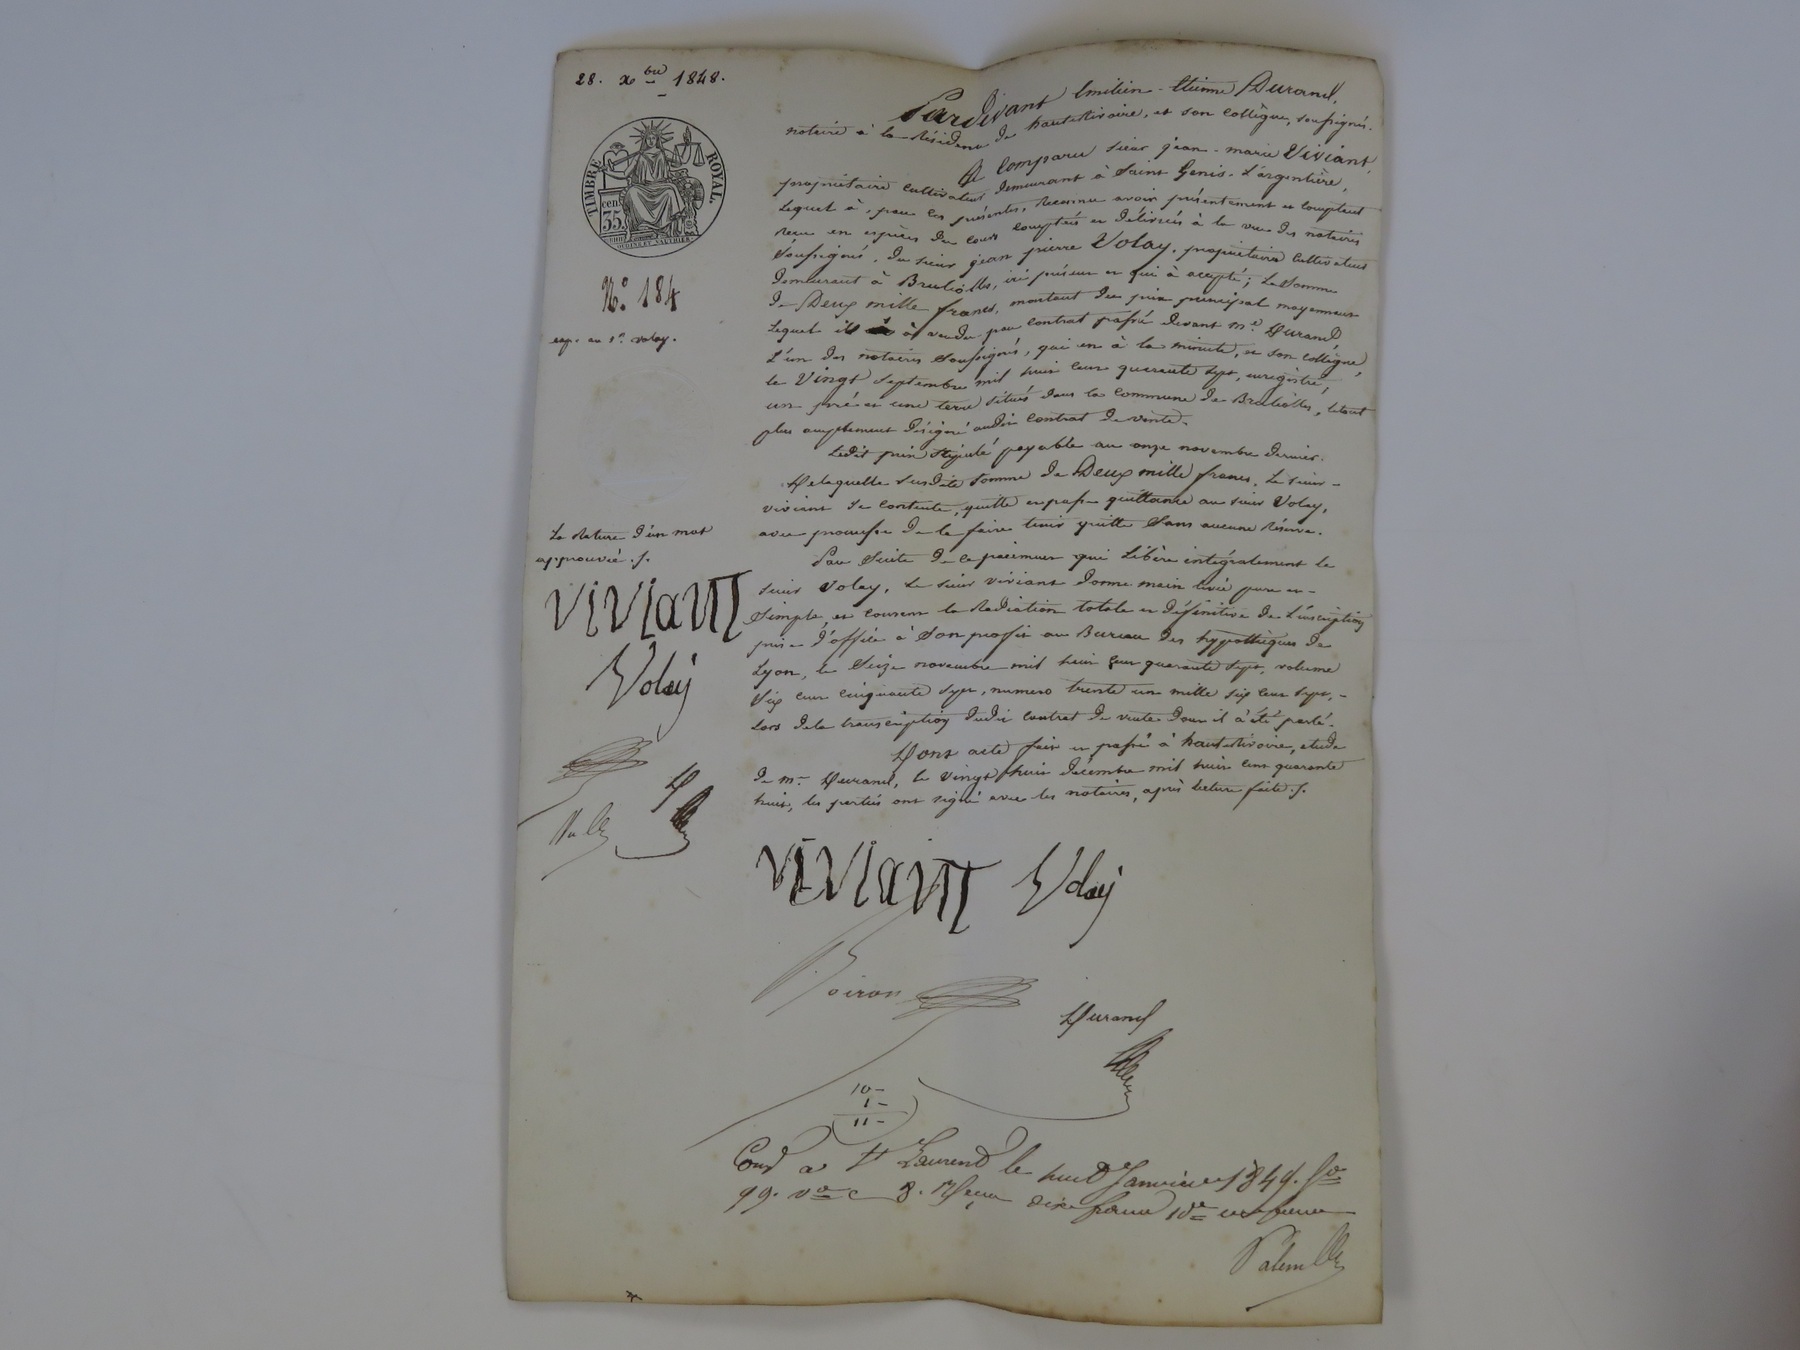 28. xbre 1848.
TIMBRE ROYAL.
cen. 35.
N.o 184
exp. au sr. volay.
Pardevant Emilien-Etienne Durand,
notaire à la Résidence de hauterivoire, et son collègue, soussignés.
A comparu sieur jean-marie Viviant,
propriétaire cultivateur demeurant à Saint Genis-L'argentière,
Lequel à, par ces présentes, Reconnu avoir présentement et comptant
Reçu en espèces du cours comptées et délivrées à la vue des notaires
Soussignés, du sieur jean pierre Volay, propriétaire cultivateur
demeurant à Bruliolles, ici présent et qui à accepté; La Somme
de Deux mille francs, montant du prix principal moyennant
Lequel il à vendu par contrat passé devant me. Durand,
L'un des notaires Soussignés, qui en à la minute, et son collègue,
le Vingt Septembre mil huit cent quarante sept, enregistré,
un pré et une terre situés dans la commune de Bruliolles, letout
plus amplement désigné audit contrat de vente.
Ledit prix stipulé payable au onze novembre dernier.
Delaquelle susdite somme de Deux mille francs, Le sieur
viviant se contente, quitte et passe quittance au sieur Volay,
avec promesse de le faire tenir quitte Sans aucune Réserve.
La Rature d'un mot
approuvée. /.
Par Suite de ce paiement qui Libère intégralement le
sieur Volay, Le sieur viviant donne main levée pure et
Simple, et consent la Radiation totale et définitive de L'inscription
prise d'office à Son profit au Bureau des hypothèques de
Lyon, le Seize novembre mil huit cent quarante sept, volume
Six cent cinquante sept, numero trente un mille six cent sept,
Lors dela transcription dudit contrat de vente dont il à été parlé.
viviant
Volay
Dont acte fait et passé à hauterivoire, etude
de me. Durand, le Vingt huit décembre mil huit cent quarante
huit, les parties ont signé avec les notaires, après lecture faite. /.
D
viviant Volay
Boiron
Durand
10-
1-
11-
Enrd a St Laurent le huit Janvier 1849. fo
99. vo c 8. Reçu dix francs 10e un franc